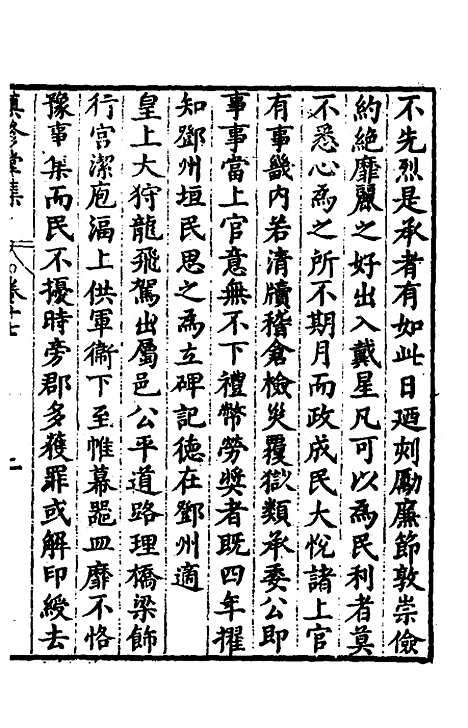 不先烈是承者有如此日廼刻勵廉節敦崇儉
約絶靡麗之好出入戴星凡可以為民利者莫
不悉心為之所不期月而政成民大悅諸上官
有事畿内若清牘稽倉檢災覆獄類承委公即
事事當上官意無不下禮幣勞奬者既四年擢
知鄧州垣民思之為立碑記德在鄧州適
皇上大狩龍飛駕出屬邑公平道路理橋梁飾
行宮潔庖湢上供軍衞下至帷幕噐皿靡不恪
豫事集而民不擾時旁郡多獲罪或解印綬去
卷十七